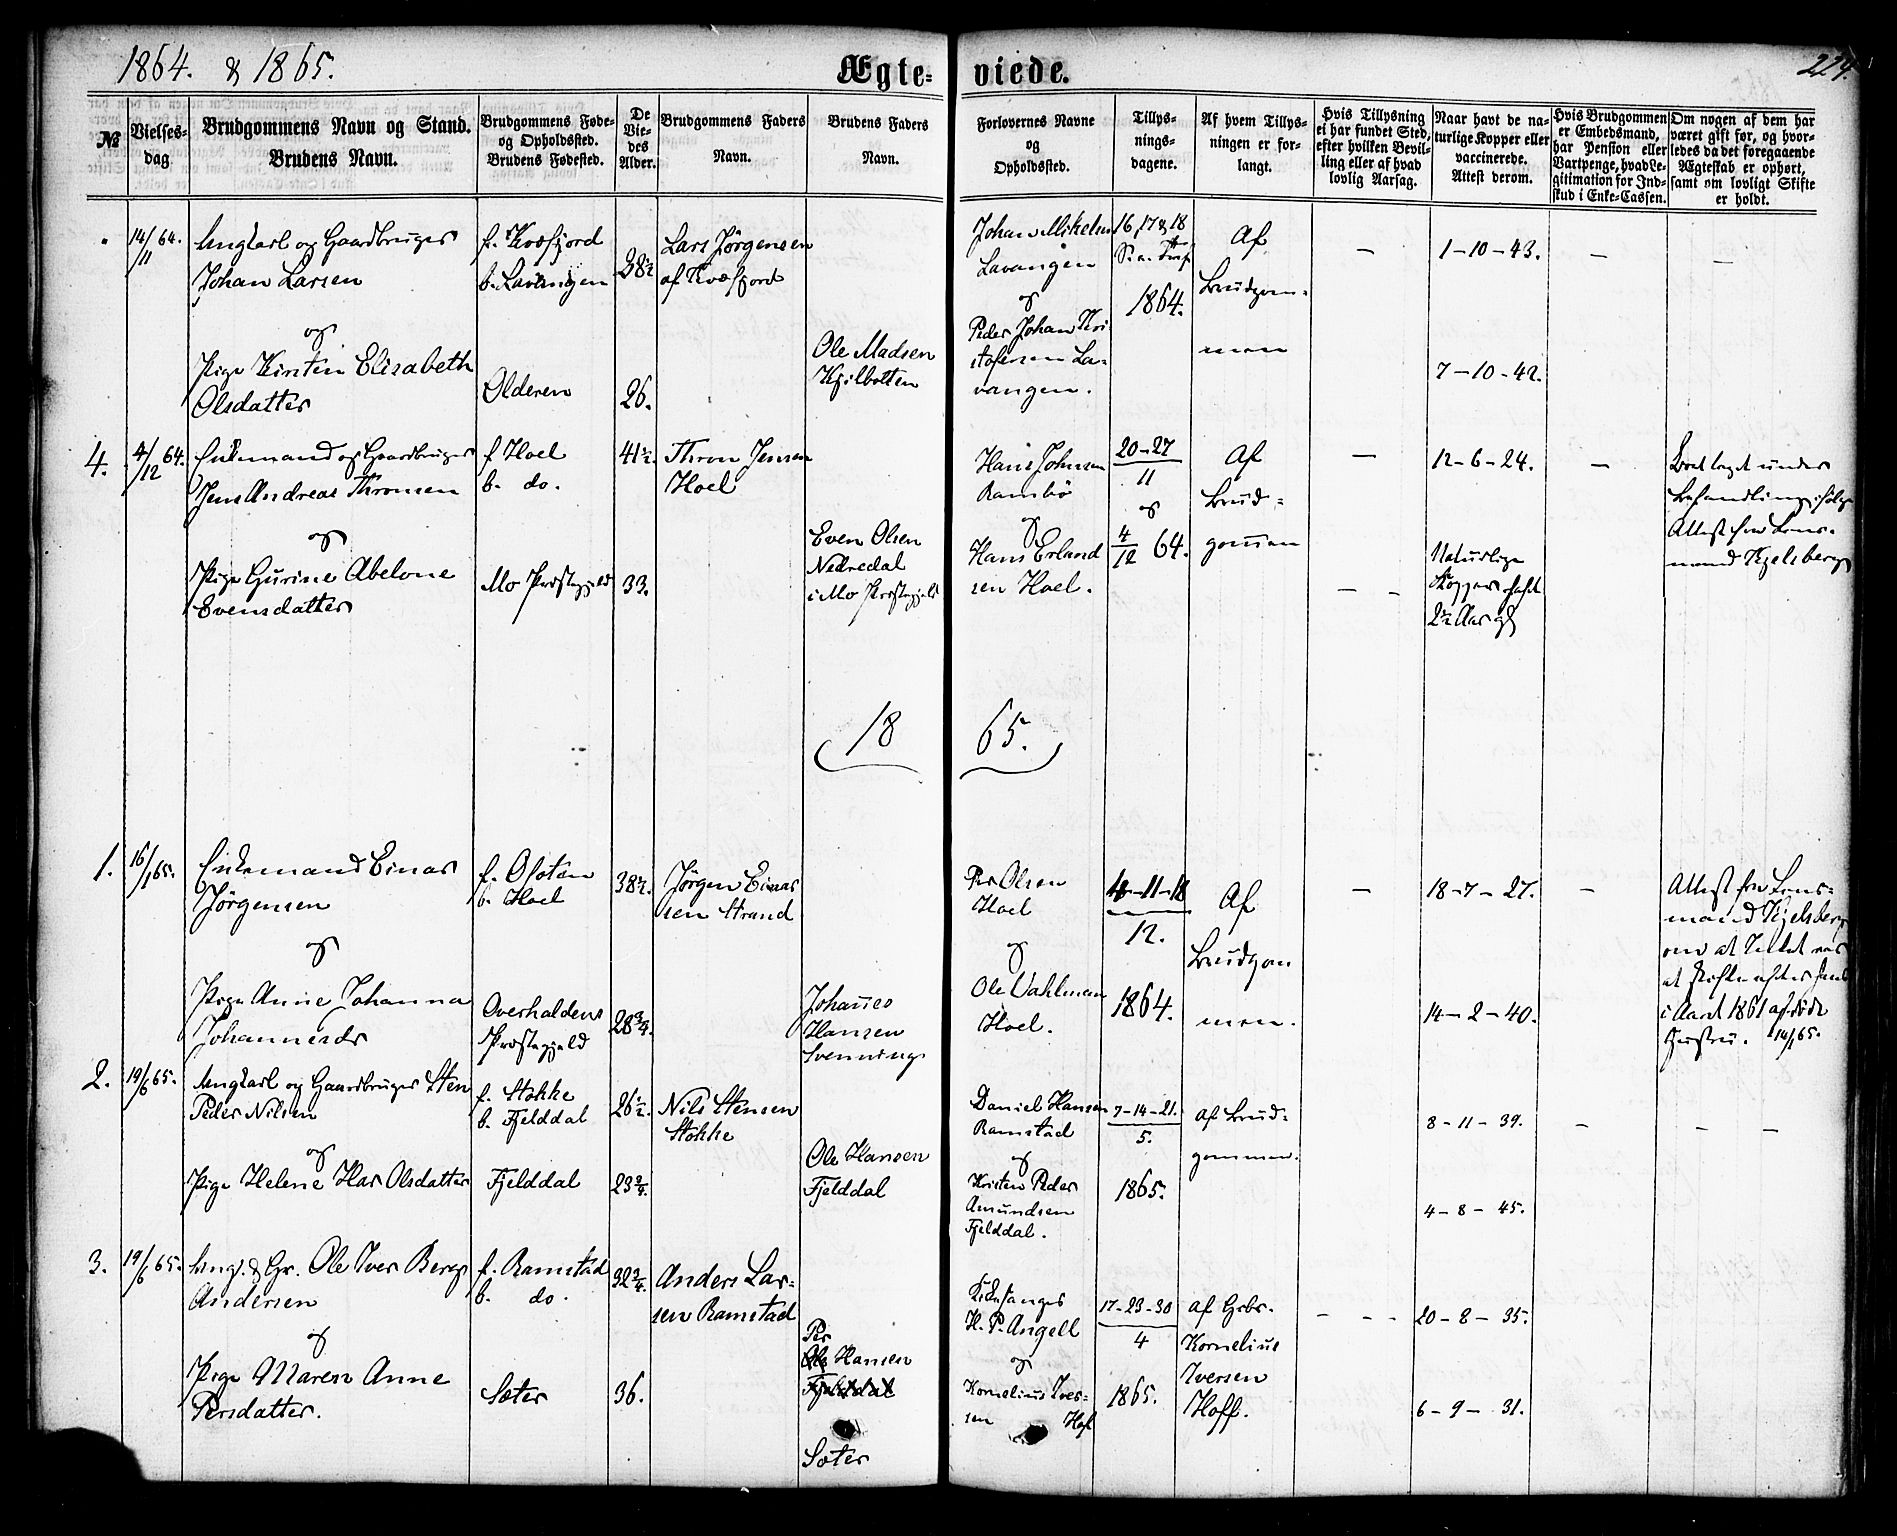 1864. & 1865.
Ægteviede.
224.
№
Vielsesdag
Brudgommens Navn og Stand.
Brudens Navn.
Brudgommens Føde-
og Opholdssted.
Brudens Fødested.
De
Vie-
des
Alder.
Brudgommens Faders
Navn.
Brudens Faders
Navn.
Forlovernes Navne
og
Opholdssted.
Tillys-
nings-
dagene.
Af hvem Tillys-
ningen er for-
langt.
Hvis Tillysning
ei har fundet Sted,
efter hvilken Bevil-
ling eller af hvad
lovlig Aarsag.
Naar havt de na-
turlige Kopper eller
vaccinerede.
Attest derom.
Hvis Brudgommen
er Embedsmand,
har Pension eller
Vartpenge, hvad Le-
gitimation for Ind-
skud i Enke-Cassen.
Om nogen af dem har
været gift før, og hvor-
ledes da det foregaaende
Ægteskab er ophørt,
samt om lovligt Skifte
er holdt.
14/11 64.
Ungkarl og Gaardbruger
Johan Larsen
og
Pige Kirstin Elisabeth
Olsdatter
f. Kvæfjord
b. Lavangen
Olderen
28½
26.
Lars Jörgensen
af Kvæfjord
Ole Madsen
Kjilbotten
Johan Mikelsen
Lavangen
og
Peder Johan Kri
stofersen La-
vangen.
16, 17 & 18
S. a. Trf
1864.
Af
Brudgom-
men
—
1-10-43.
7-10-42.
—
—
4.
4/12 64.
Enkemand og Gaardbruger
Jens Andreas Thronsen
og
Pige Gurine Abelone
Evensdatter
f Hoel
b. do.
Mo Præstegjeld
41½
33.
Thron Jensen
Hoel
Even Olsen
Nedredal
i Mo Præstegjeld
Hans Johnsen
Rambö
og
Hans Erland
sen Hoel.
20-27
11
og
4/12 64.
Af
Brud-
gommen
—
— -
12-6-24.
Naturlige
Kopper havt
2½ Aar gl
—
Boet taget under
Behandling ifölge
Attest fra Lens-
mand Kjelsberg
18 65.
1.
16/1 65.
Enkemand Einar
Jörgensen
og
Pige Anne Johanna
Johannesdr
f. Ofsten
b. Hoel
Overhaldens
Præstegjeld
38½.
28¾.
Jörgen Einar
sen Strand
Johannes
Hansen
Svenning
Per Olsen
Hoel
og
Ole Vahlman
Hoel.
4-11-18
12.
1864.
Af
Brudgom
men.
—
18-7-27.
14-2-40.
—
Attest fra Lens-
mand Kjelsberg
om at Intet var
at skifte efter hans
i Aaret 1861 afdöde
Hustru. 14/1 65.
2.
19/6 65.
Ungkarl og Gaardbruger Sten
Peder Nilsen
og
Pige Helene Har Olsdatter
f. Stokke
b. Fjelddal
Fjelddal
26½.
23¾.
Nils Stensen
Stokke
Ole Hansen
Fjelddal
Daniel Hansen
Ramstad
og
Kristen Peder
Amundsen
Fjelddal.
7-14-21.
5.
1865.
af Brud-
gommen.
8-11-39.
4-8-45.
-
- -
3.
19/6 65.
Ung. & Gr. Ole Iver Berg
Andersen
og
Pige Maren Anne
Persdatter.
f. Ramstad
b. do.
Sæter
32¾.
36.
Anders Lar-
sen Ramstad
Per
Ole Hansen
Fjelddal
Sæter
Kirkesanger
H. P. Angell
og
Kornelius Iver-
sen Hof
17-23-30
4
1865.
af Grbr.
Kornelius
Iversen
Hoff.
- - -
20-8-35.
6-9-31.